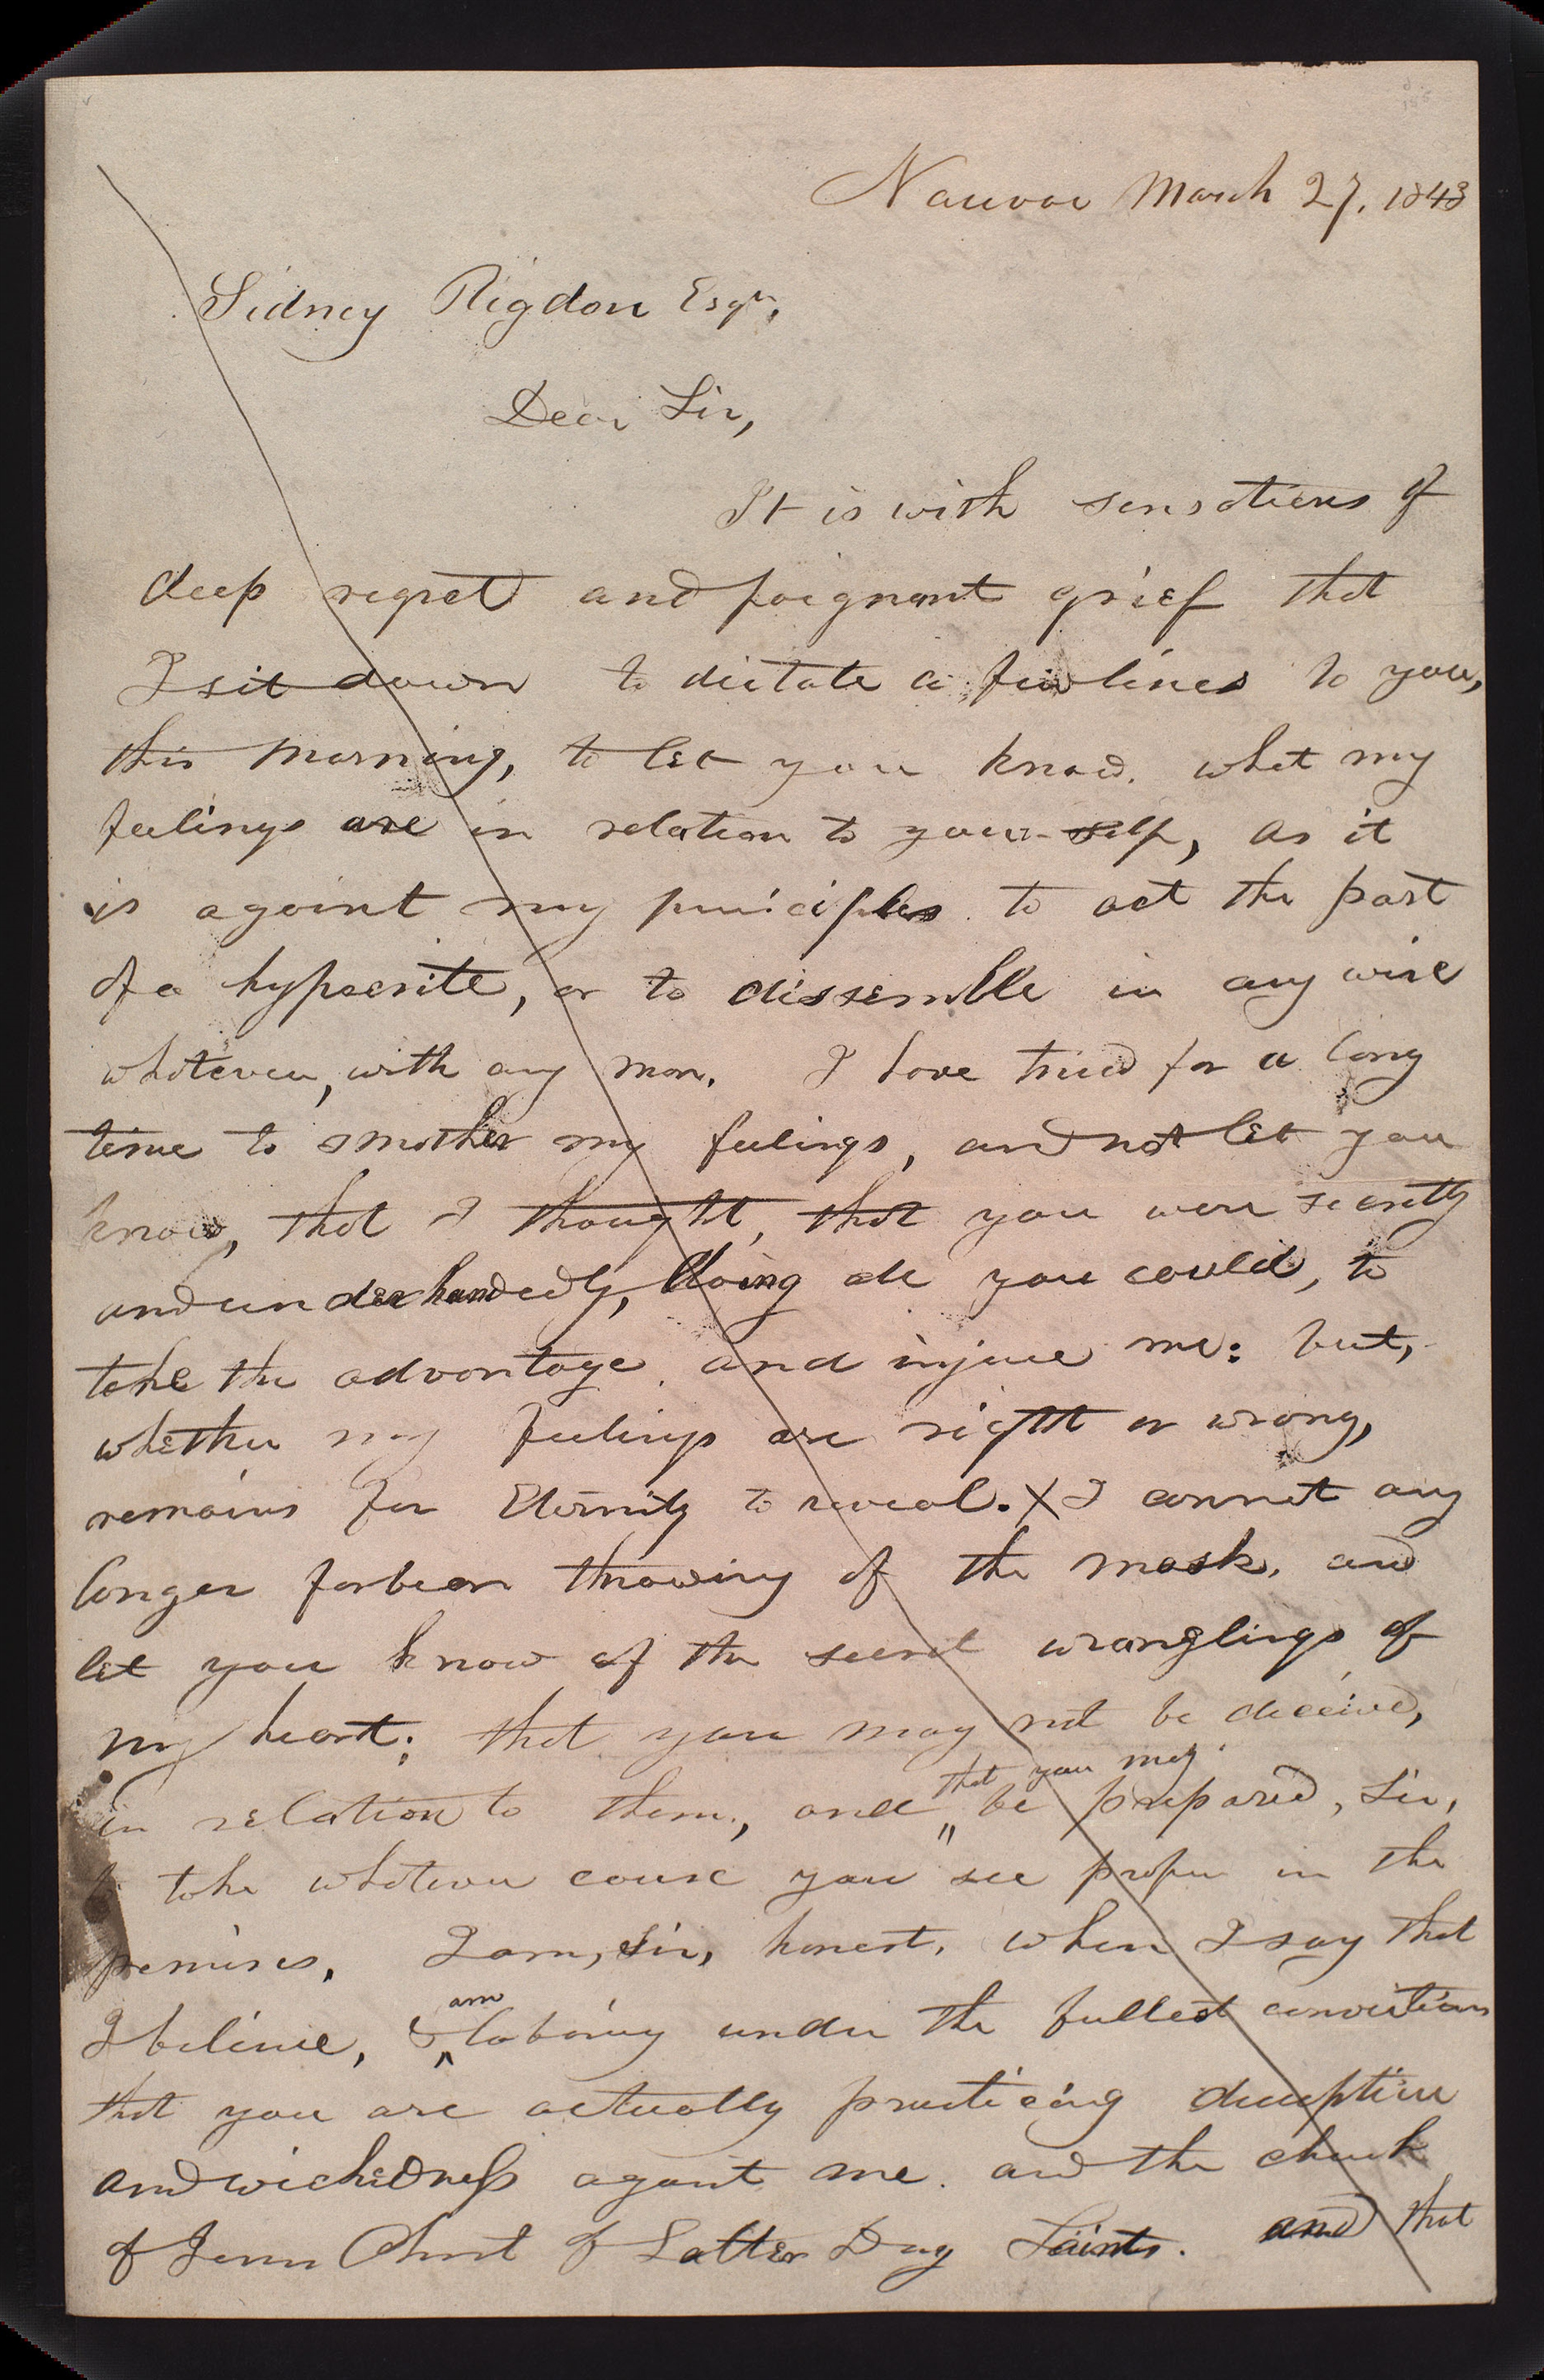 Nauvoo March 27, 1843
Sidney Rigdon Esqr,
Dear Sir,
It is with sensations of
deep regret and poignant grief that
I sit down to dictate a few lines to you,
this morning, to let you know, what my
feelings are in relation to your-self, as it
is against my principles to act the part
of a hypocrite, or to dissemble in any wise
whatever, with any man. I have tried for a long
time to smother my feelings, and not let you
know, that I thought, that you were secretly
and underhandedly, doing all you could, to
take the advantage, and injure me: but,
whether my feelings are right or wrong,
remains for Eternity to reveal. X I cannot any
longer forbear throwing of the mask, and
let you know of the secret wranglings of
my heart; that you may not be deceived,
that you may
in relation to them, and " be prepared, Sir,
take whatever course you see proper in the
premises. I am, Sir, honest, when I say that
am
I believe, & ^ laboring under the fullest convictions
that you are actually practicing deception
and wickedness against me, and the church
of Jesus Christ of Latter Day Saints. and that